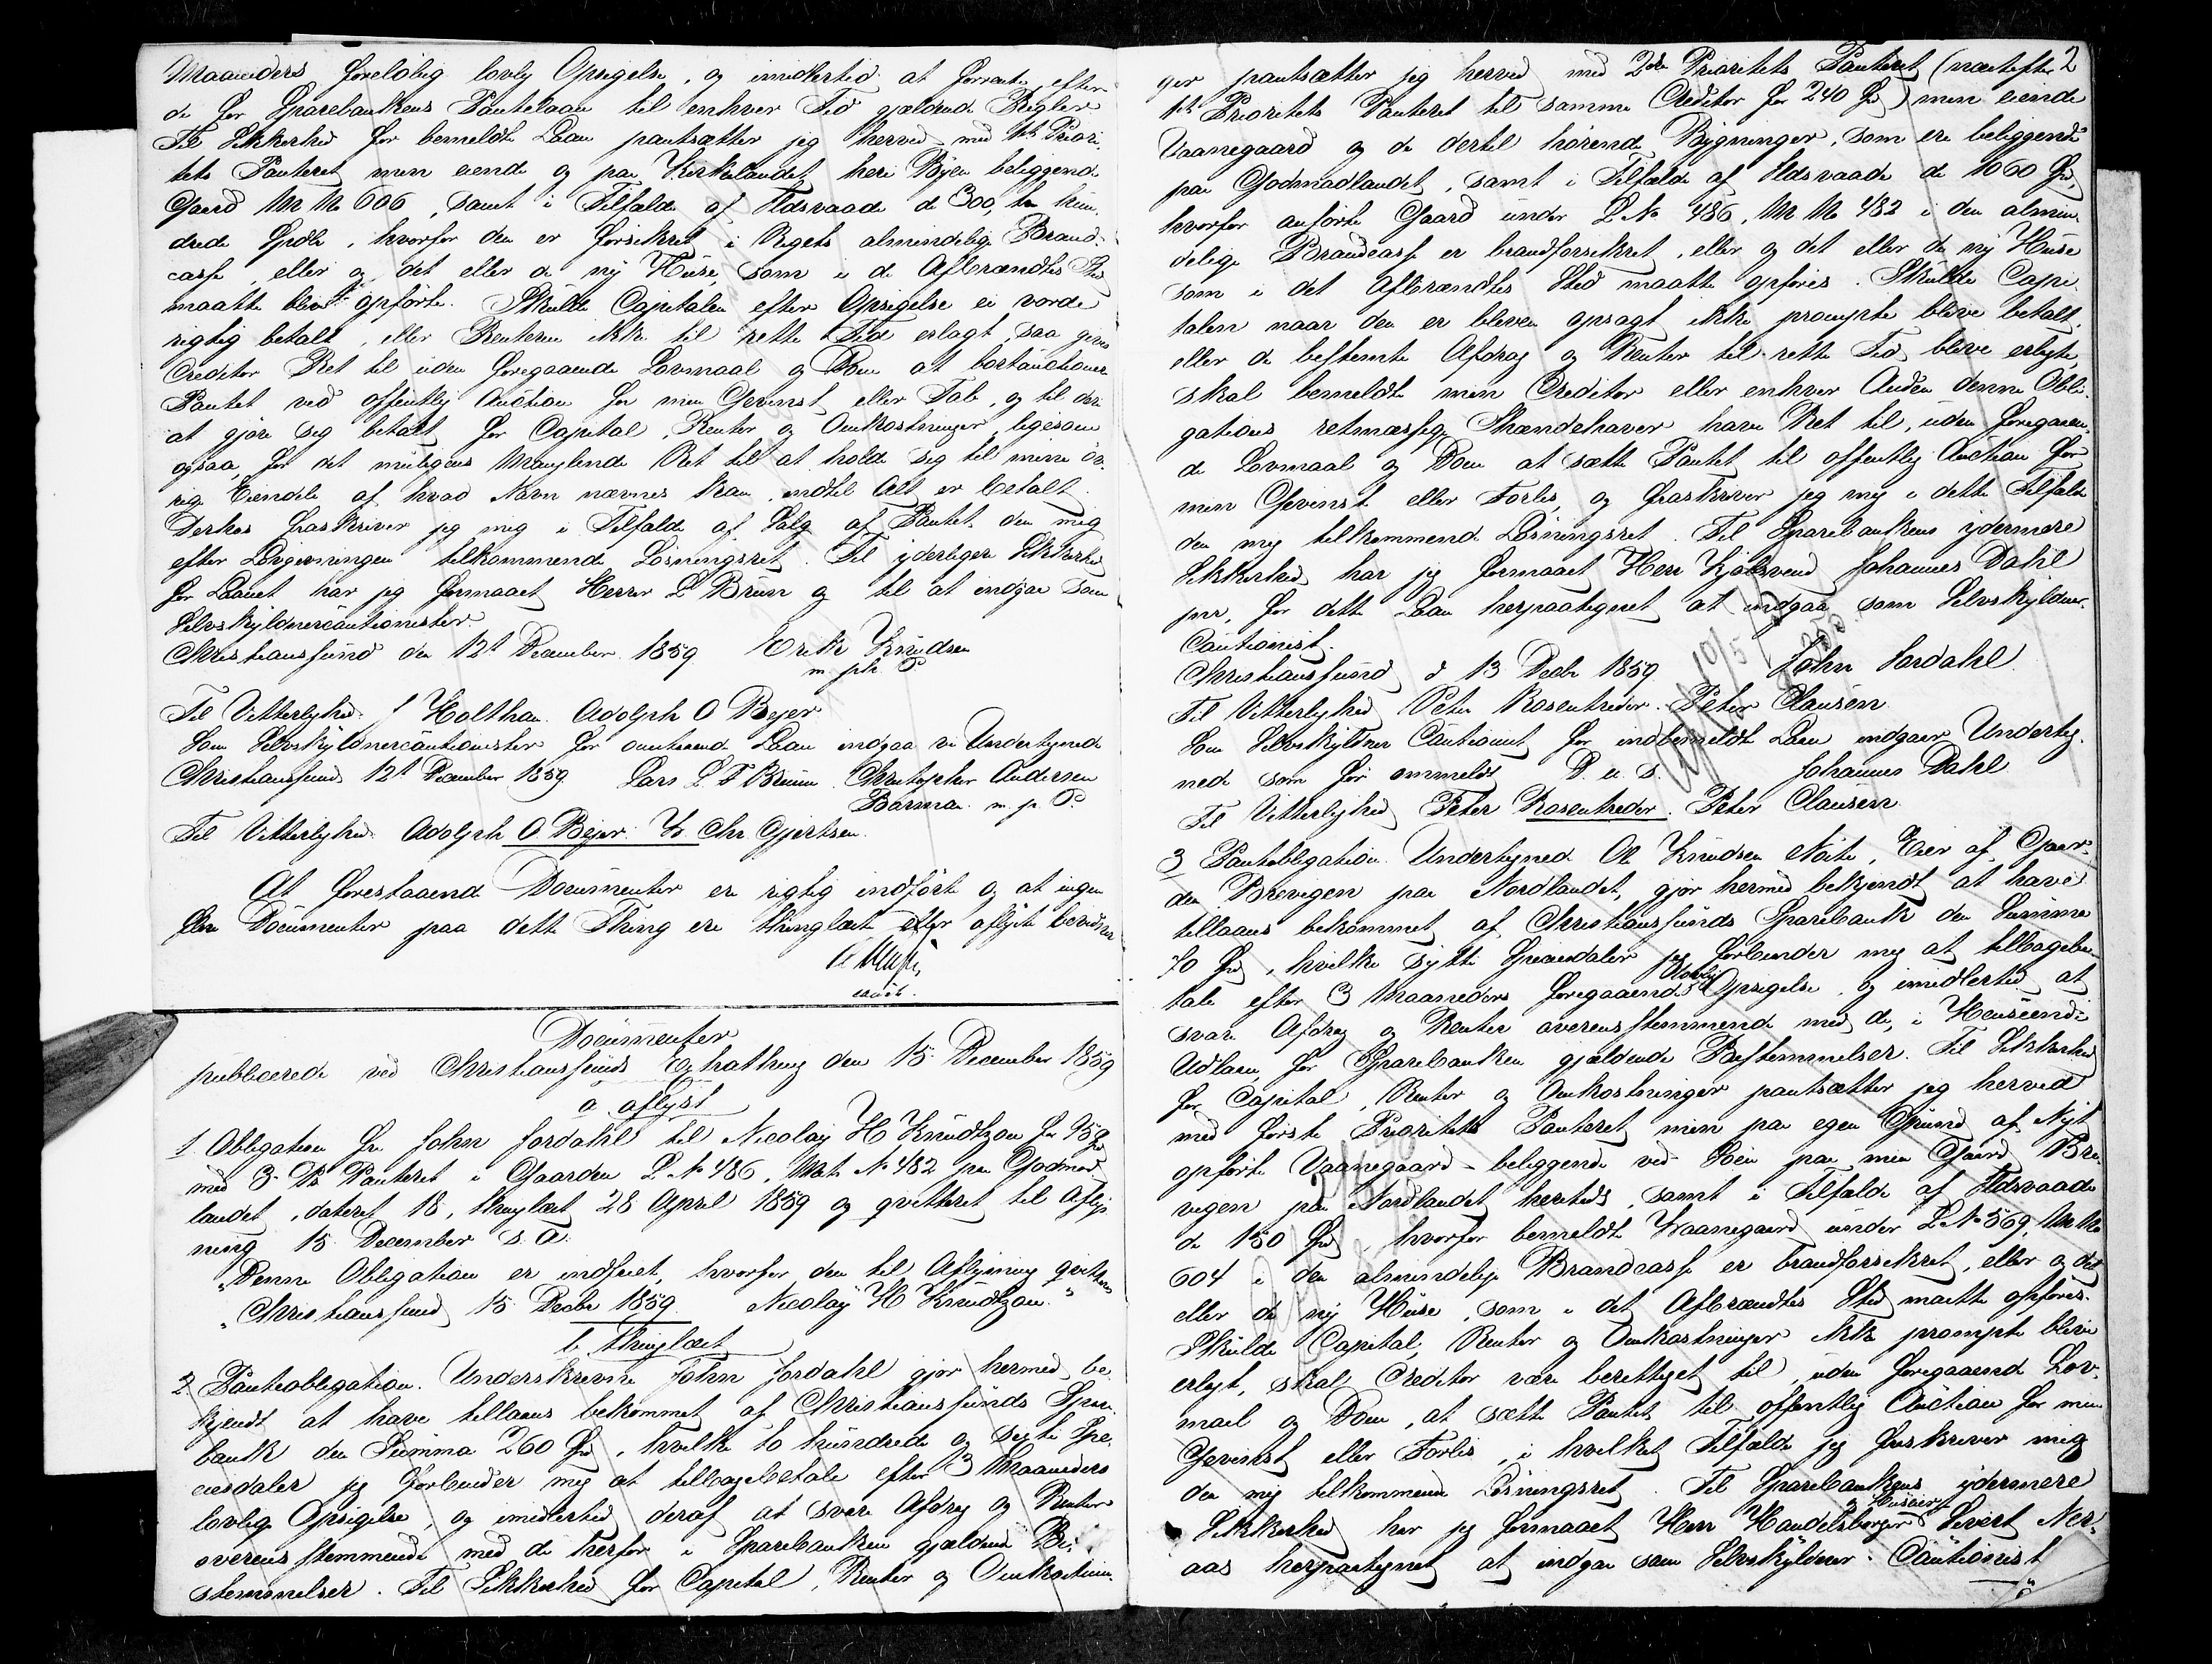 Maaneders foreløbig lovlig Opsigelse, og imidlertid at forrente efter
de for Sparebankens Pantelaan til enhver Tid gjældende Regler.
Til Sikkerhed for bemeldte Laan pantsætter jeg herved med 1ste Priori-
tets Panteret min eiende og paa Kirkelandet her i Byen beliggende
Gaard Mr No 606, samt i Tilfælde af Ildsvaade de 300, tre hun-
drede Spdlr, hvorfor den er forsikret i Rigets almindelige Brand-
casse, eller og det eller de ny Huse, som i de Afbrændtes Sted
maatte blive opførte. Skulde Capitalen efter Opsigelse ei vorde
rigtig betalt, eller Renterne ikke til rette Tid erlagt, saa gives
Creditor Ret til uden foregaaende Lovmaal og Dom at bortauctionere
Pantet ved offentlig Auction for min Gevinst eller Tab, og til deri
at gjøre sig betalt for Capital, Renter og Omkostninger, ligesom
ogsaa for det muligens Manglende Ret til at holde sig til mine øv-
rige Eiendele af hvad Navn nævnes kan, indtil Alt er betalt.
Derhos fraskriver jeg mig i Tilfælde af Salg af Pantet den mig
efter Lovgivningen tilkommende Løsningsret. Til yderligere Sikkerhed
for Laanet har jeg formaaet Herrer L Bruun og til at indgaa som
Selvskyldnercautionister.
Christianssund den 12te December 1859 Erik Knudsen
m. p. P.
Til Vitterlighed: J Holthan. Adolph O Beyer
Som Selvskyldnercautionister for omstaaende Laan indgaa vi Undertegnede
Christianssund 12te December 1859. Lars L. F Bruun. Christopher Andersen
Barman m. p. P.
Til Vitterlighed: Adolph O. Bejer. Chr Gjertsen.
At forestaaende Documenter ere rigtig indførte og at ingen
flere Documenter paa dette Thing ere thinglæste eller aflyste bevidnes
const.
Documenter
publicerede ved Christianssunds Extrathing den 15 December 1859
a aflyst
1 Obligation fra John Jordahl til Nicolay H Knudtzon for 95 Spd
med 3. Pr Panteret i Gaarden L No 486, Mat. No 482 paa Godmad-
landet, dateret 18, thinglæst 28 April 1859 og qvitteret til Aflys-
ning 15 December s. A.
"Denne Obligation er indfriet, hvorfor den til Aflysning qvitteres
"Christianssund 15 Decbr 1859. Nicolay H Knudtzon."
b, thinglæst
2 Panteobligation. Underskrevne John Jordahl gjør hermed be-
kjendt at have tillaans bekommet af Christianssunds Spare-
bank den Summa 260 Spd, hvilke to hundrede og sexti Spe-
ciesdaler jeg forbinder mig at tilbagebetale efter 3 Maaneders
lovlig Opsigelse, og imidlertid deraf at svare Afdrag og Renter
overensstemmende med de herfor i Sparebanken gjældende Be-
stemmelser. Til Sikkerhed for Capital, Renter og Omkostnin-
2
ger pantsætter jeg herved med 2den Prioritets Panteret (næstefter
1ste Prioritets Panteret til samme Creditor for 240 Spd) min eiende
Vaanegaard og de dertil hørende Bygninger, som ere beliggende
paa Godmadlandet, samt i Tilfælde af Ildsvaade de 1060 Spd,
hvorfor anførte Gaard under L No 486, Mr No 482 i den almin-
delige Brandcasse er brandforsikret, eller og det eller de ny Huse
som i det Afbrændtes Sted maatte opføres. Skulde Capi-
talen naar den er bleven opsagt ikke prompte blive betalt,
eller de bestemte Afdrag og Renter til rette Tid blive erlagte,
skal bemeldte min Creditor eller enhver Anden denne Obli-
gations retmæssige Ihændehaver have Ret til, uden foregaaen-
de Lovmaal og Dom at sætte Pantet til offentlig Auction for
min Gevinst eller Forlis, og fraskriver jeg mig i dette Tilfælde
den mig tilkommende Løsningsret. Til Sparebankens ydermere
Sikkerhed har jeg formaaet Herr Kjøbsvend Johannes Dahl
for dette Laan herpaategnet at indgaa som Selvskyldner-
Cautionist.
Christianssund d 13 Decbr 1859. John Jordahl.
Til Vitterlighed Peter Rosentreder. Peter Clausen.
Som Selvskyldner Cautionist for indbemeldte Laan indgaaer Underteg-
nede som før ommeldt D. u. s. Johannes Dahl.
Til Vitterlighed Peter Rosentreder. Peter Clausen.
3 Panteobligation. Undertegnede Ole Knudsen Eier af Gaar-
den Brevegen paa Nordlandet, gjør hermed bekjendt at have
tillaans bekommet af Christianssunds Sparebank den Summa
70 Spd, hvilke sytti Speciesdaler jeg forbinder mig at tilbagebe-
tale efter 3 Maaneders foregaaende lovlig Opsigelse, og imidlertid at
svare Afdrag og Renter overensstemmende med de, i Henseende
Udlaan for Sparebanken gjældende Bestemmelser. Til Sikkerhed
for Capital, Renter og Omkostninger pantsætter jeg herved
med første Prioritets Panteret min paa egen Grund af Nyt
opførte Vaanegaard beliggende ved Søen paa min Gaard Bre-
vegen paa Nordlandet hersteds, samt i Tilfælde af Ildsvaade
de 150 Spd, hvorfor bemeldte Vaanegaard under L No 569, Mr No
604 i den almindelige Brandcasse er brandforsikret, eller og det
eller de ny Huse, som i det Afbrændtes Sted maatte opføres.
Skulde Capital, Renter og Omkostninger ikke prompte blive
erlagt, skal Creditor være berettiget til, uden foregaaende Lov-
maal og Dom, at sætte Pantet til offentlig Auction for min
Gevinst eller Forlis, i hvilket Tilfælde jeg fraskriver mig
den mig tilkommende Løsningsret. Til Sparebankens ydermere
Sikkerhed har jeg formaaet Herr Handelsborger og Huseier Sivert Ner-
aas herpaategnet at indgaa som Selvskyldner-Cautionist